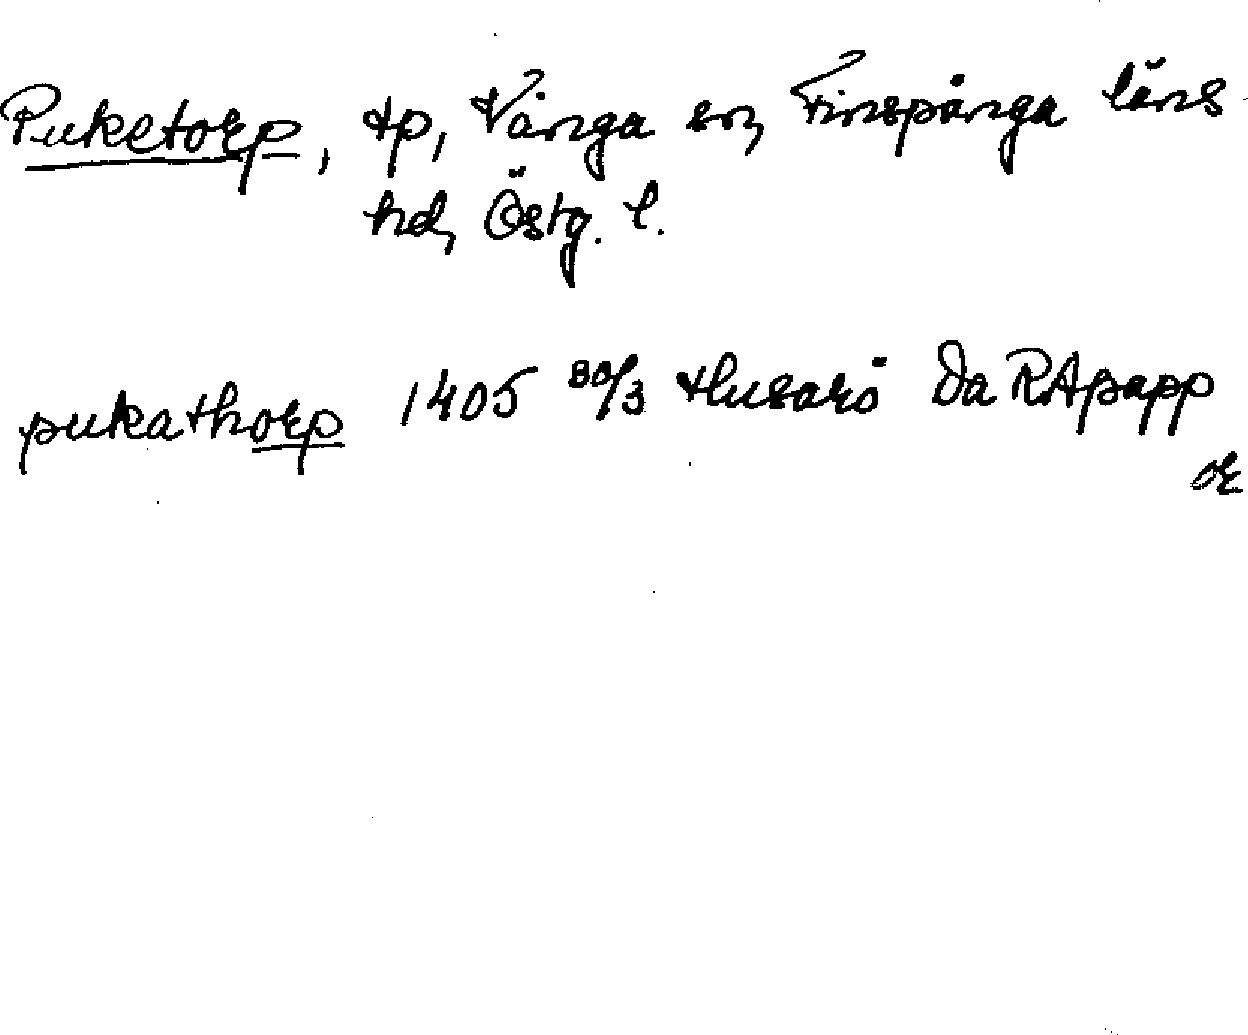 Puketorp, tp, Vånga sn, Finspånga läns
hd, Östg. l.
pukathorp 1405 30/3 thusarö Da RApapp
or